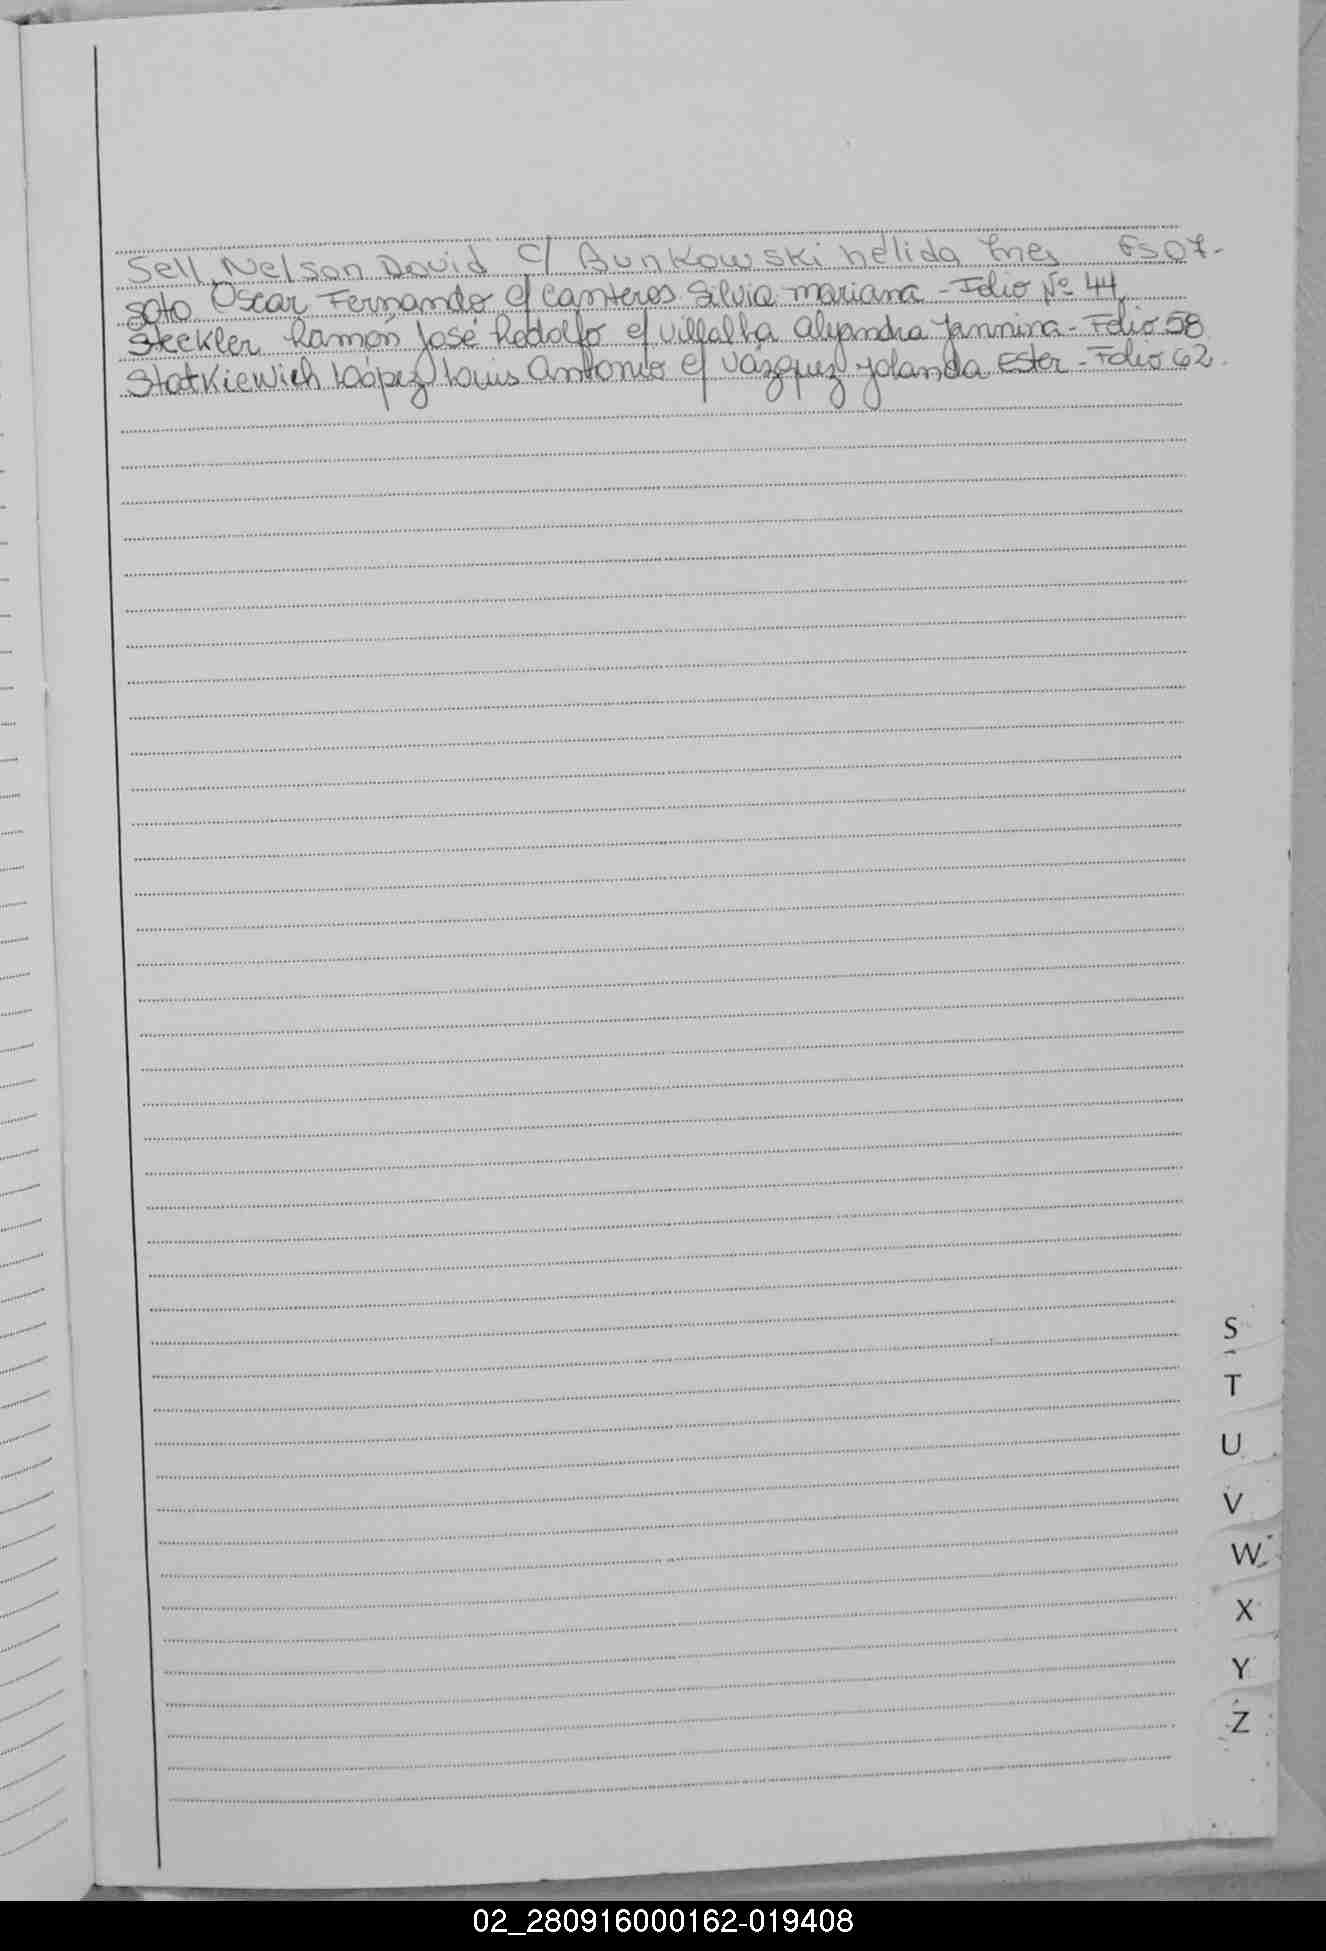 Sell, Nelson David c/ Bunkowski nélida Ines Fs 07-
Soto Oscar Fernando c/ Canteros Silvia mariana - Folio Nº 44
Steckler Ramón José Rodolfo c/ Villalba Alejandra Jannina - Folio 58
Statkiewich López Luis Antonio c/ Vázquez Yolanda Ester - Folio 62.
S
T
U
V
W
X
Y
Z
02_280916000162-019408